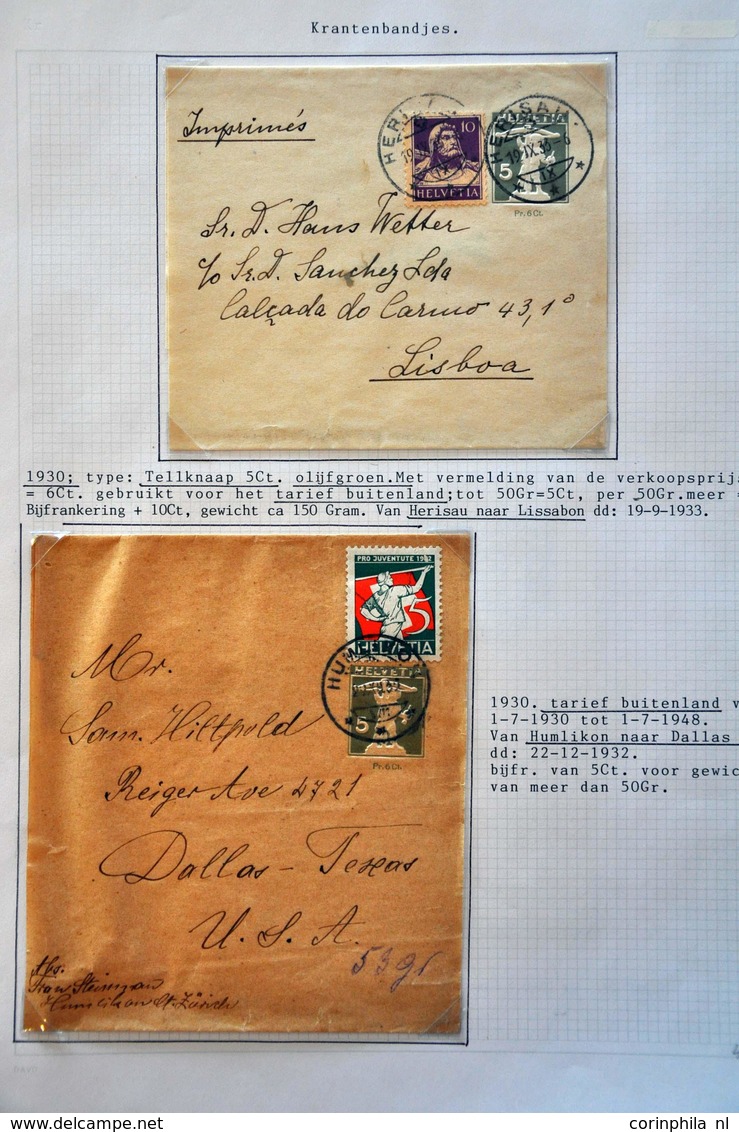 Krantenbandjes.
Imprimés
HERISAU
10
HELVETIA
HERISAU
19.IX.33
IX
5
Pr. 6 Ct.
Sr. D. Hans Wetter
c/o Sr. D. Sanchez Lda
Calçada do Carmo 43, 1º
Lisboa
1930; type: Tellknaap 5Ct. olijfgroen.Met vermelding van de verkoopsprij
= 6Ct. gebruikt voor het tarief buitenland;tot 50Gr=5Ct, per 50Gr.meer =
Bijfrankering + 10Ct, gewicht ca 150 Gram. Van Herisau naar Lissabon dd: 19-9-1933.
PRO JUVENTUTE 1932
5
HELVETIA
HELVETIA
5
Pr. 6 Ct.
Mr.
Sam. Hiltpold
Reiger Ave 4721
Dallas - Texas
U. S. A.
53 gr
Abs.
Frau Steinman
Humlikon Ct. Zürich
1930. tarief buitenland v
1-7-1930 tot 1-7-1948.
Van Humlikon naar Dallas
dd: 22-12-1932.
bijfr. van 5Ct. voor gewic
van meer dan 50Gr.
www.delcampe.net
corinphila nl